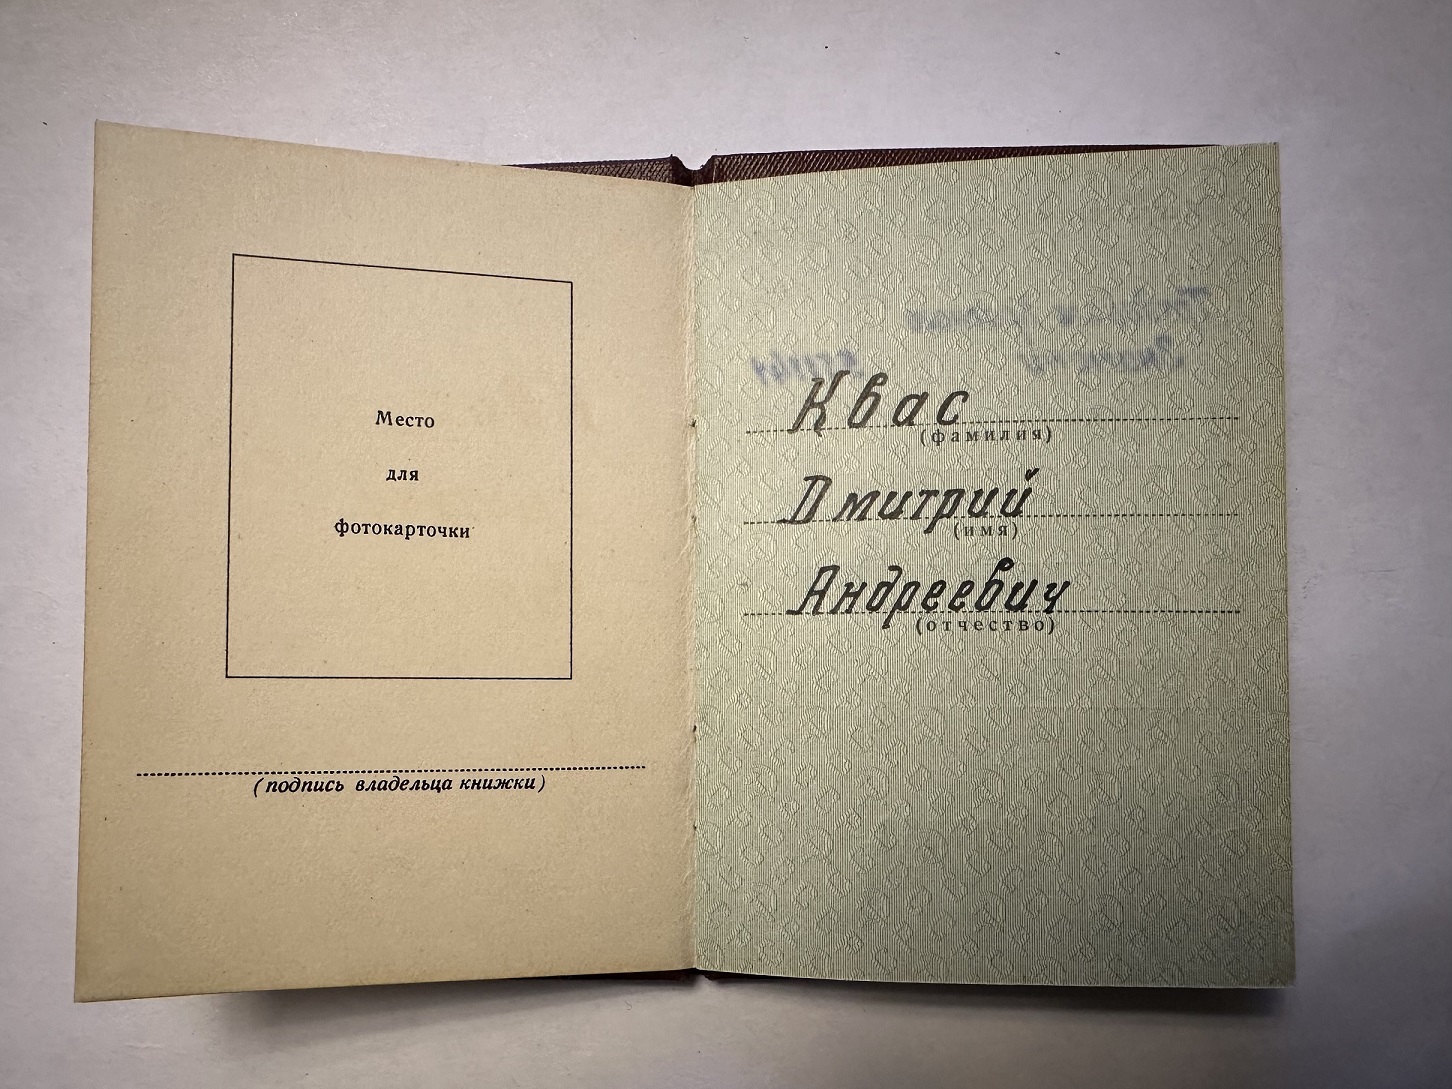 Место
для
фотокарточки
(подпись владельца книжки)
Квас
(фамилия)
Дмитрий
(имя)
Андреевич
(отчество)